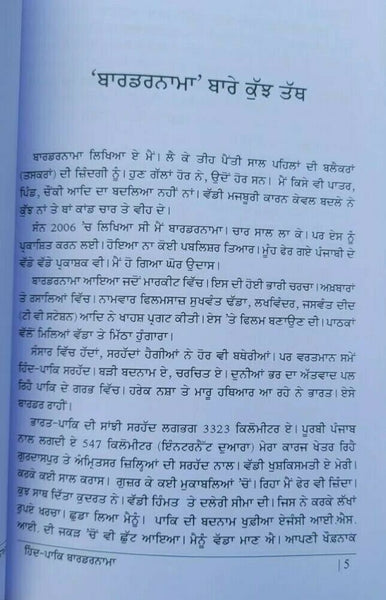 ‘ਬਾਰਡਰਨਾਮਾ’ ਬਾਰੇ ਕੁੱਝ ਤੱਥ
ਬਾਰਡਰਨਾਮਾ ਲਿਖਿਆ ਏ ਮੈਂ। ਲੈ ਕੇ ਤੀਹ ਪੈਂਤੀ ਸਾਲ ਪਹਿਲਾਂ ਦੀ ਬਲੈਕਰਾਂ
(ਤਸਕਰਾਂ) ਦੀ ਜ਼ਿੰਦਗੀ ਨੂੰ। ਹੁਣ ਗੱਲਾਂ ਹੋਰ ਨੇ, ਉਦੋਂ ਹੋਰ ਸਨ। ਮੈਂ ਕਿਸੇ ਵੀ ਪਾਤਰ,
ਪਿੰਡ, ਚੌਕੀ ਆਦਿ ਦਾ ਬਦਲਿਆ ਨਹੀਂ ਨਾਂ। ਵੱਡੀ ਮਜਬੂਰੀ ਕਾਰਨ ਕੇਵਲ ਬਦਲੇ ਨੇ
ਕੁੱਝ ਨਾਂ ਤੇ ਥਾਂ ਕਾਂਡ ਚਾਰ ਤੇ ਵੀਹ ਦੇ।
ਸੰਨ 2006 ’ਚ ਲਿਖਿਆ ਸੀ ਮੈਂ ਬਾਰਡਰਨਾਮਾ। ਚਾਰ ਸਾਲ ਲਾ ਕੇ। ਪਰ ਏਸ ਨੂੰ
ਪ੍ਰਕਾਸ਼ਿਤ ਕਰਨ ਲਈ। ਹੋਇਆ ਨਾ ਕੋਈ ਪਬਲਿਸ਼ਰ ਤਿਆਰ। ਮੂੰਹ ਫੇਰ ਗਏ ਪੰਜਾਬੀ ਦੇ
ਵੱਡੇ ਵੱਡੇ ਪ੍ਰਕਾਸ਼ਕ ਵੀ। ਮੈਂ ਹੋ ਗਿਆ ਘੋਰ ਉਦਾਸ।
ਬਾਰਡਰਨਾਮਾ ਆਇਆ ਜਦੋਂ ਮਾਰਕੀਟ ਵਿੱਚ। ਇਸ ਦੀ ਹੋਈ ਭਾਰੀ ਚਰਚਾ। ਅਖ਼ਬਾਰਾਂ
ਤੇ ਰਸਾਲਿਆਂ ਵਿੱਚ। ਨਾਮਵਾਰ ਫਿਲਮਸਾਜ਼ ਸੁਖਵੰਤ ਢੱਡਾ, ਲਖਵਿੰਦਰ, ਜਸਵੰਤ ਦੀਦ
(ਟੀ ਵੀ ਸਟੇਸ਼ਨ) ਆਦਿ ਨੇ ਖਾਹਸ਼ ਪ੍ਰਗਟ ਕੀਤੀ। ਏਸ ’ਤੇ ਫਿਲਮ ਬਣਾਉਣ ਦੀ। ਪਾਠਕਾਂ
ਵੱਲੋਂ ਮਿਲਿਆਂ ਵੱਡਾ ਤੇ ਮਿੱਠਾ ਹੁੰਗਾਰਾ।
ਸੰਸਾਰ ਵਿੱਚ ਹੱਦਾਂ, ਸਰਹੱਦਾਂ ਹੈਗੀਆਂ ਨੇ ਹੋਰ ਵੀ ਬਥੇਰੀਆਂ। ਪਰ ਵਰਤਮਾਨ ਸਮੇਂ
ਹਿੰਦ-ਪਾਕਿ ਸਰਹੱਦ। ਬੜੀ ਬਦਨਾਮ ਏ, ਚਰਚਿਤ ਏ। ਦੁਨੀਆਂ ਭਰ ਦਾ ਅੱਤਵਾਦ ਪਲ
ਰਿਹੈ ਪਾਕਿ ਦੇ ਗਰਭ ਵਿੱਚ। ਹਰੇਕ ਨਸ਼ਾ ਤੇ ਮਾਰੂ ਹਥਿਆਰ ਆ ਰਹੇ ਨੇ ਭਾਰਤ। ਏਸੇ
ਬਾਰਡਰ ਰਾਹੀਂ।
ਭਾਰਤ-ਪਾਕਿ ਦੀ ਸਾਂਝੀ ਸਰਹੱਦ ਲਗਭਗ 3323 ਕਿਲੋਮੀਟਰ ਏ। ਪੂਰਬੀ ਪੰਜਾਬ
ਨਾਲ ਲਗਦੀ ਏ 547 ਕਿਲੋਮੀਟਰ (ਇੰਨਟਰਨੈੱਟ ਦੁਆਰਾ) ਮੇਰਾ ਕਾਰਜ ਖੇਤਰ ਰਿਹੈ
ਗੁਰਦਾਸਪੁਰ ਤੇ ਅੰਮ੍ਰਿਤਸਰ ਜ਼ਿਲ੍ਹਿਆਂ ਦੀ ਸਰਹੱਦ ਨਾਲ। ਵੱਡੀ ਖੁਸ਼ਕਿਸਮਤੀ ਏ ਮੇਰੀ।
ਕਰਕੇ ਕਈ ਸਾਲ ਕਰਾਸ। ਗੁਜ਼ਰ ਕੇ ਕਈ ਮੁਕਾਬਲਿਆਂ ’ਚੋਂ। ਰਿਹਾ ਮੈਂ ਫੇਰ ਵੀ ਜ਼ਿੰਦਾ।
ਕੁਝ ਸਾਥ ਦਿੱਤਾ ਕੁਦਰਤ ਨੇ। ਵੱਡੀ ਹਿੰਮਤ ਤੇ ਦਲੇਰੀ ਸੀਮਾ ਦੀ। ਜਿਸ ਨੇ ਕਰਕੇ ਲੱਖਾਂ
ਰੁਪਏ ਖਰਚਾ। ਛੁਡਾ ਲਿਆ ਮੈਨੂੰ। ਪਾਕਿ ਦੀ ਬਦਨਾਮ ਖੁਫ਼ੀਆ ਏਜੰਸੀ ਆਈ.ਐਸ.
ਆਈ. ਦੀ ਜਕੜ ’ਚੋਂ ਵੀ ਛੁੱਟ ਆਇਆ। ਮੈਨੂੰ ਵੱਡਾ ਮਾਣ ਐ। ਆਪਣੀ ਖੌਫ਼ਨਾਕ
ਹਿੰਦ-ਪਾਕਿ ਬਾਰਡਰਨਾਮਾ | 5